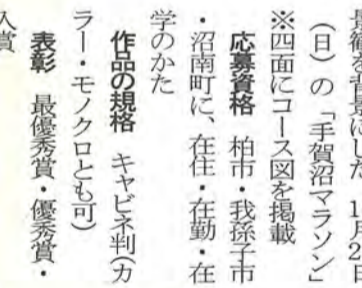 景観を背景にした、11月2日
(日)の「手賀沼マラソン」
※四面にコース図を掲載
応募資格 柏市・我孫子市
・沼南町に、在住・在勤・在
学のかた
作品の規格 キャビネ判(カ
ラー・モノクロとも可)
表彰 最優秀賞・優秀賞・
入賞